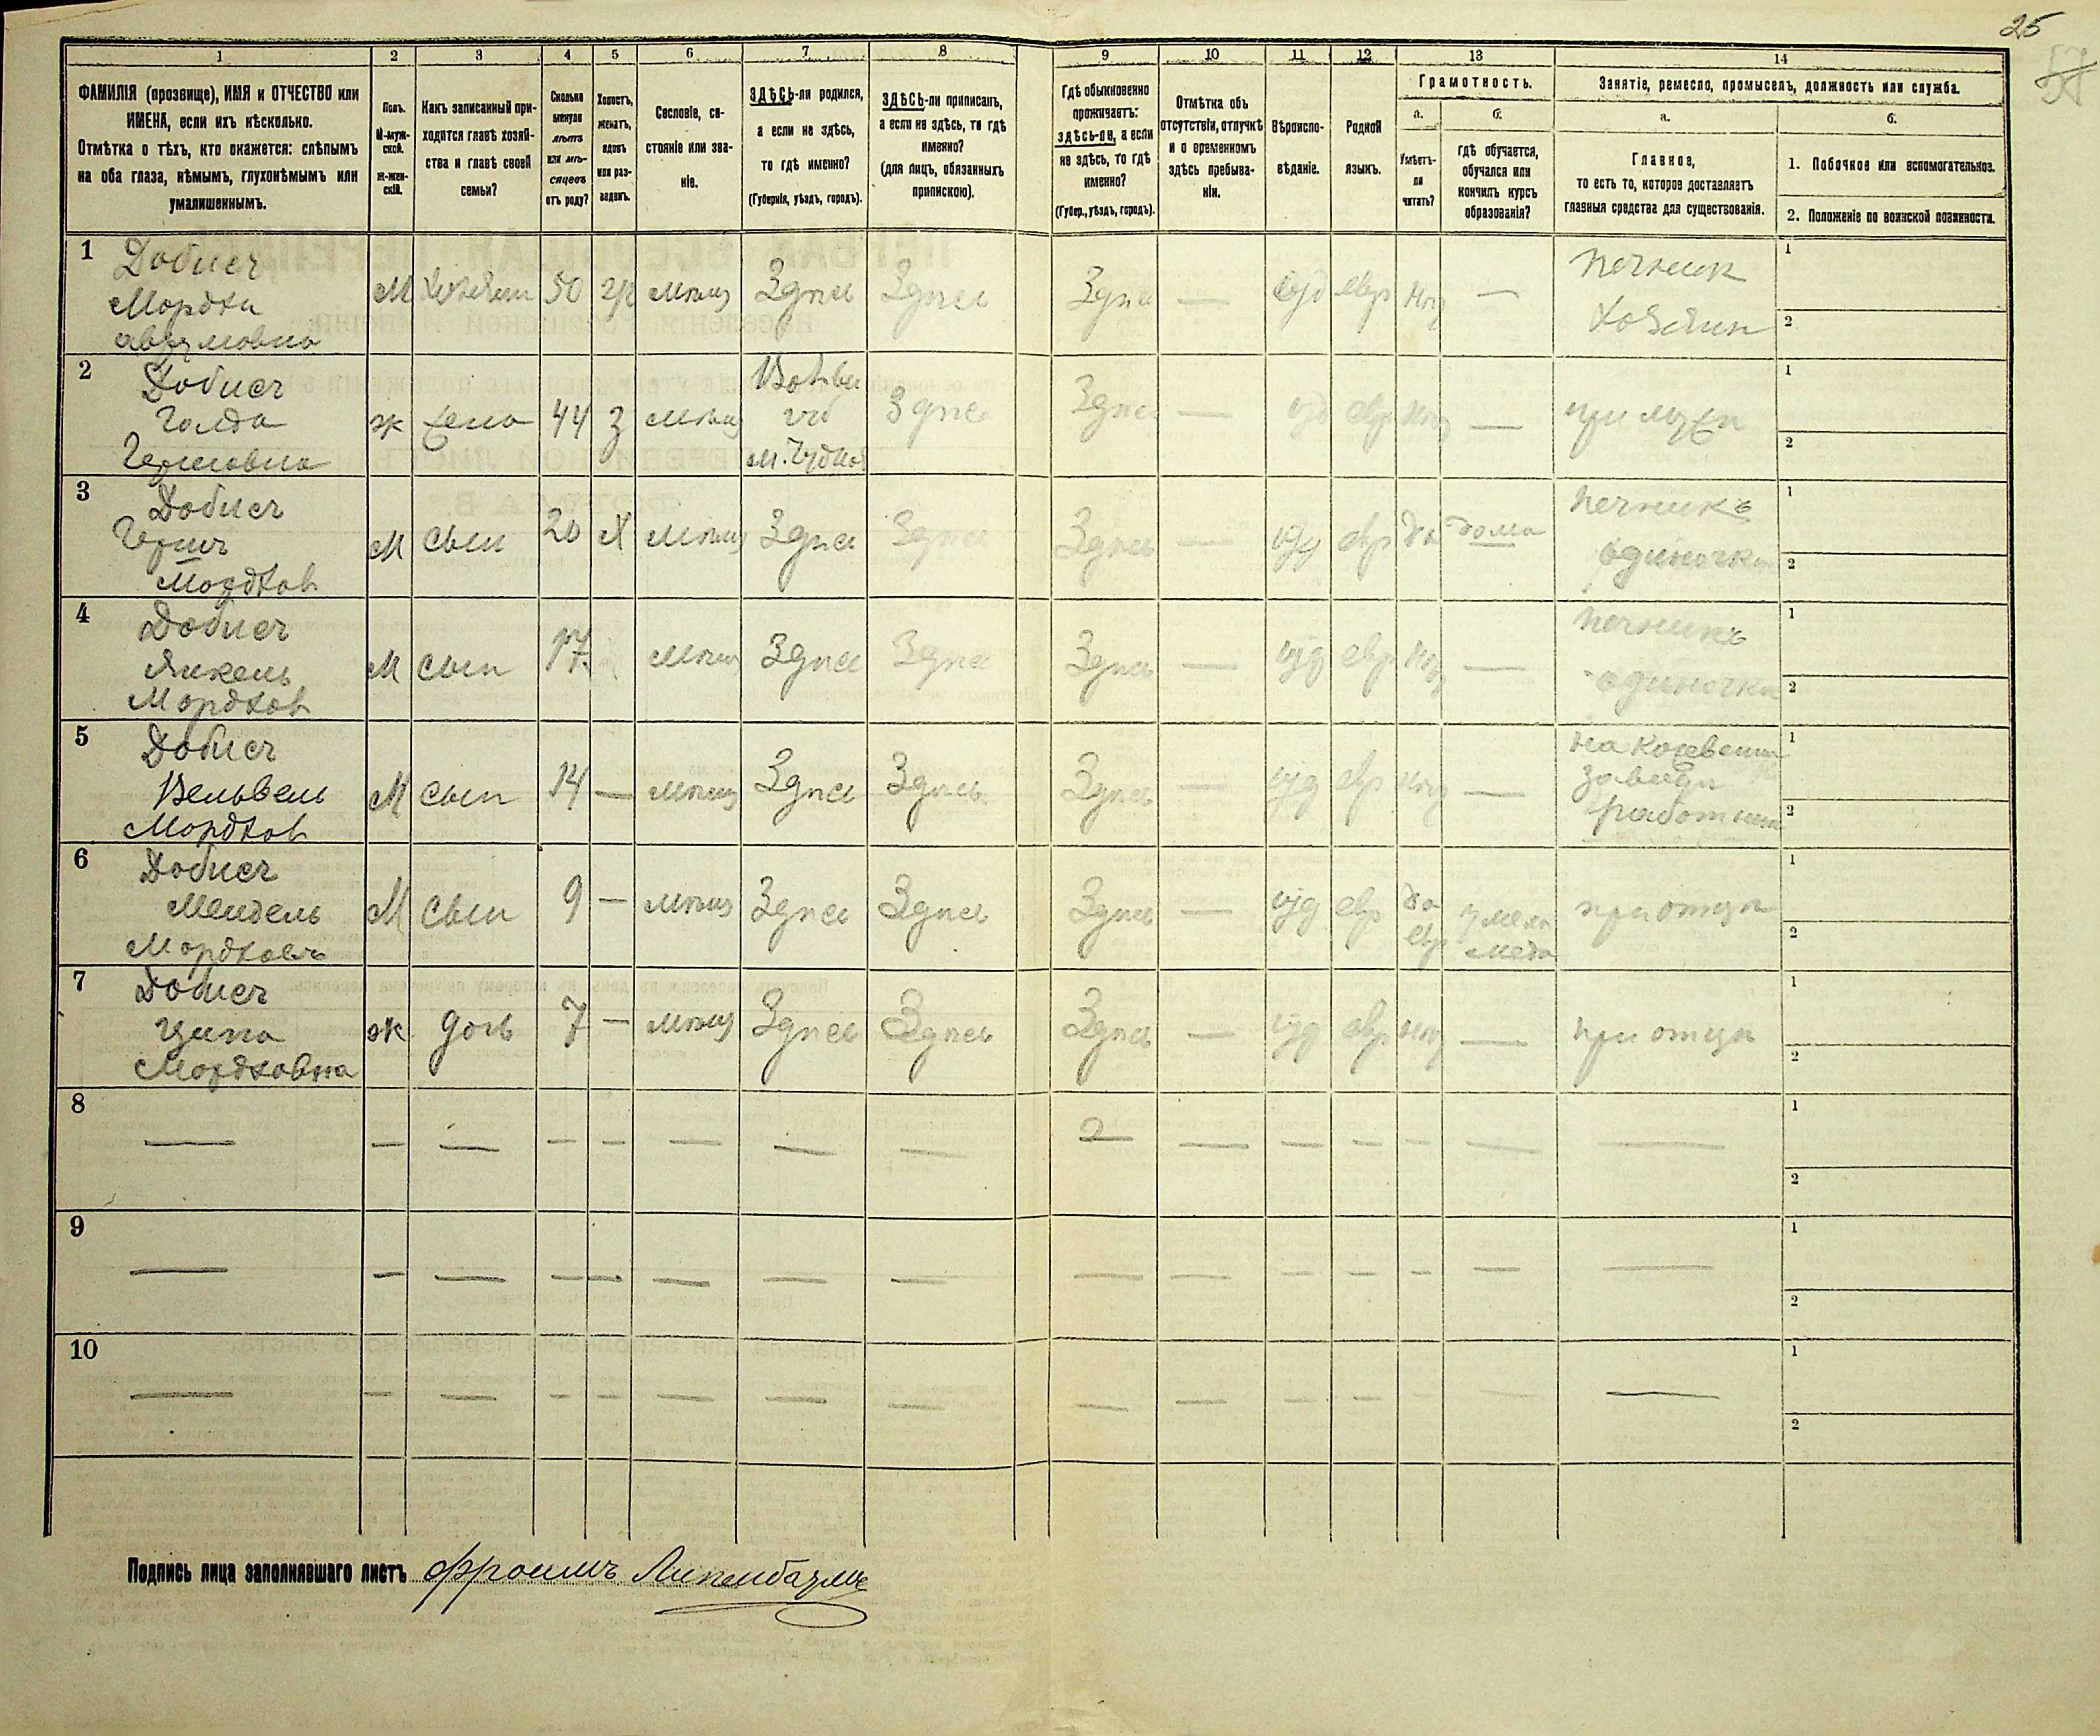 25
1 2 3 4 5 6 7 8 9 10 11 12 13 14
ФАМИЛІЯ (прозвище), ИМЯ и ОТЧЕСТВО или
ИМЕНА, если ихъ нѣсколько.
Отмѣтка о тѣхъ, кто окажется: слѣпымъ
на оба глаза, нѣмымъ, глухонѣмымъ или
умалишеннымъ.
Полъ.
М-муж-
ской.
Ж-жен-
скій.
Какъ записанный при-
ходится главѣ хозяй-
ства и главѣ своей
семьи?
Сколько
минуло
лѣтъ
или мѣ-
сяцевъ
отъ роду?
Холостъ,
женатъ,
вдовъ
или раз-
веденъ.
Сословіе, со-
стояніе или зва-
ніе.
ЗДѢСЬ-ли родился,
а если не здѣсь,
то гдѣ именно?
(Губернія, уѣздъ, городъ).
ЗДѢСЬ-ли приписанъ,
а если не здѣсь, то гдѣ
именно?
(для лицъ, обязанныхъ
припискою).
Гдѣ обыкновенно
проживаетъ:
здѣсь-ли, а если
не здѣсь, то гдѣ
именно?
(Губер., уѣздъ, городъ).
Отмѣтка объ
отсутствіи, отлучкѣ
и о временномъ
здѣсь пребыва-
ніи.
Вѣроиспо-
вѣданіе.
Родной
языкъ.
Грамотность.
а.
Умѣетъ-
ли
читать?
б.
гдѣ обучается,
обучался или
кончилъ курсъ
образованія?
Занятіе, ремесло, промыселъ, должность или служба.
а.
Главное,
то есть то, которое доставляетъ
главныя средства для существованія.
б.
1. Побочное или вспомогательное.
2. Положеніе по воинской повинности.
1 Добисч
Мордхи
Аврумовна
М Хозяин 50 жн мѣщ Здѣсь Здѣсь Здѣсь — іуд евр нѣт — печник
хозяин
1
2
2 Добисч
Голда
Гершовна
ж жена 44 з мѣщ
м. Чуднов
Здѣсь Здѣсь — іуд евр нѣт — при мужѣ
1
2
3 Добисч
Гершъ
Мордхов
М сын 20 Х мѣщ Здѣсь Здѣсь Здѣсь — іуд евр да дома печникъ
одиночка
1
2
4 Добисч
Янкель
Мордхов
М сын 17 мѣщ Здѣсь Здѣсь Здѣсь — іуд евр нѣт — печникъ
одиночка
1
2
5 Добисч
Вельвель
Мордхов
М сын 14 — мѣщ Здѣсь Здѣсь Здѣсь — іуд евр нѣт —
на кожевенн
заводѣ
работник
1
2
6 Добисч
Мендель
Мордховъ
М сын 9 — мѣщ Здѣсь Здѣсь Здѣсь — іуд евр да
евр
у мела
меда
при отцѣ
1
2
7 Добисч
Ципа
Мордховна
ж дочь 7 — мѣщ Здѣсь Здѣсь Здѣсь — іуд евр нѣт — при отцѣ
1
2
8 — — — — — — — — — — — — — — —
1
2
9 — — — — — — — — — — — — — — —
1
2
10 — — — — — — — — — — — — — — —
1
2
Подпись лица заполнявшаго листъ Фроимъ Липенбаумъ